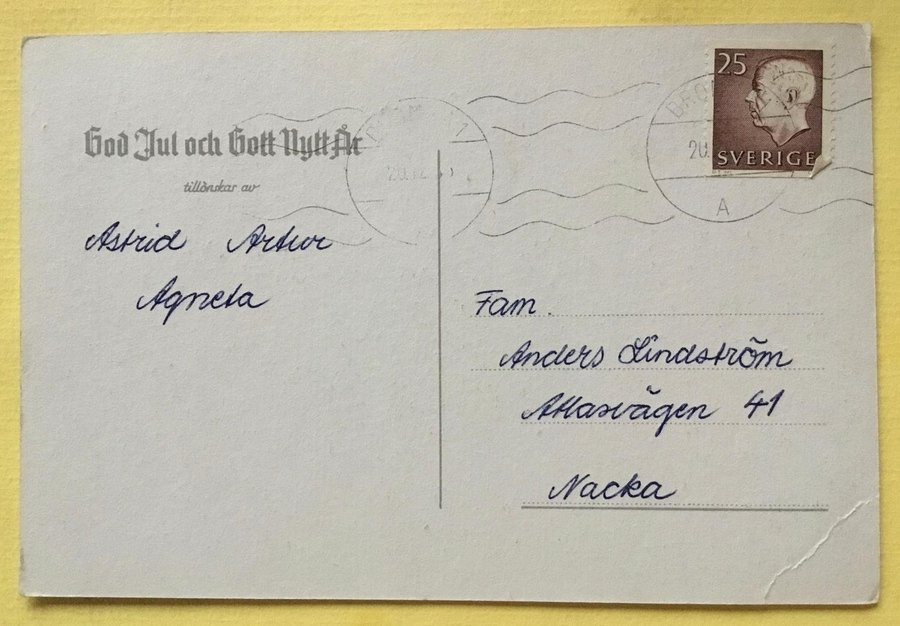 God Jul och Gott Nytt År
tillönskar av
Astrid Artur
Agneta
25
SVERIGE
A
Fam.
Anders Lindström
Atlasvägen 41
Nacka